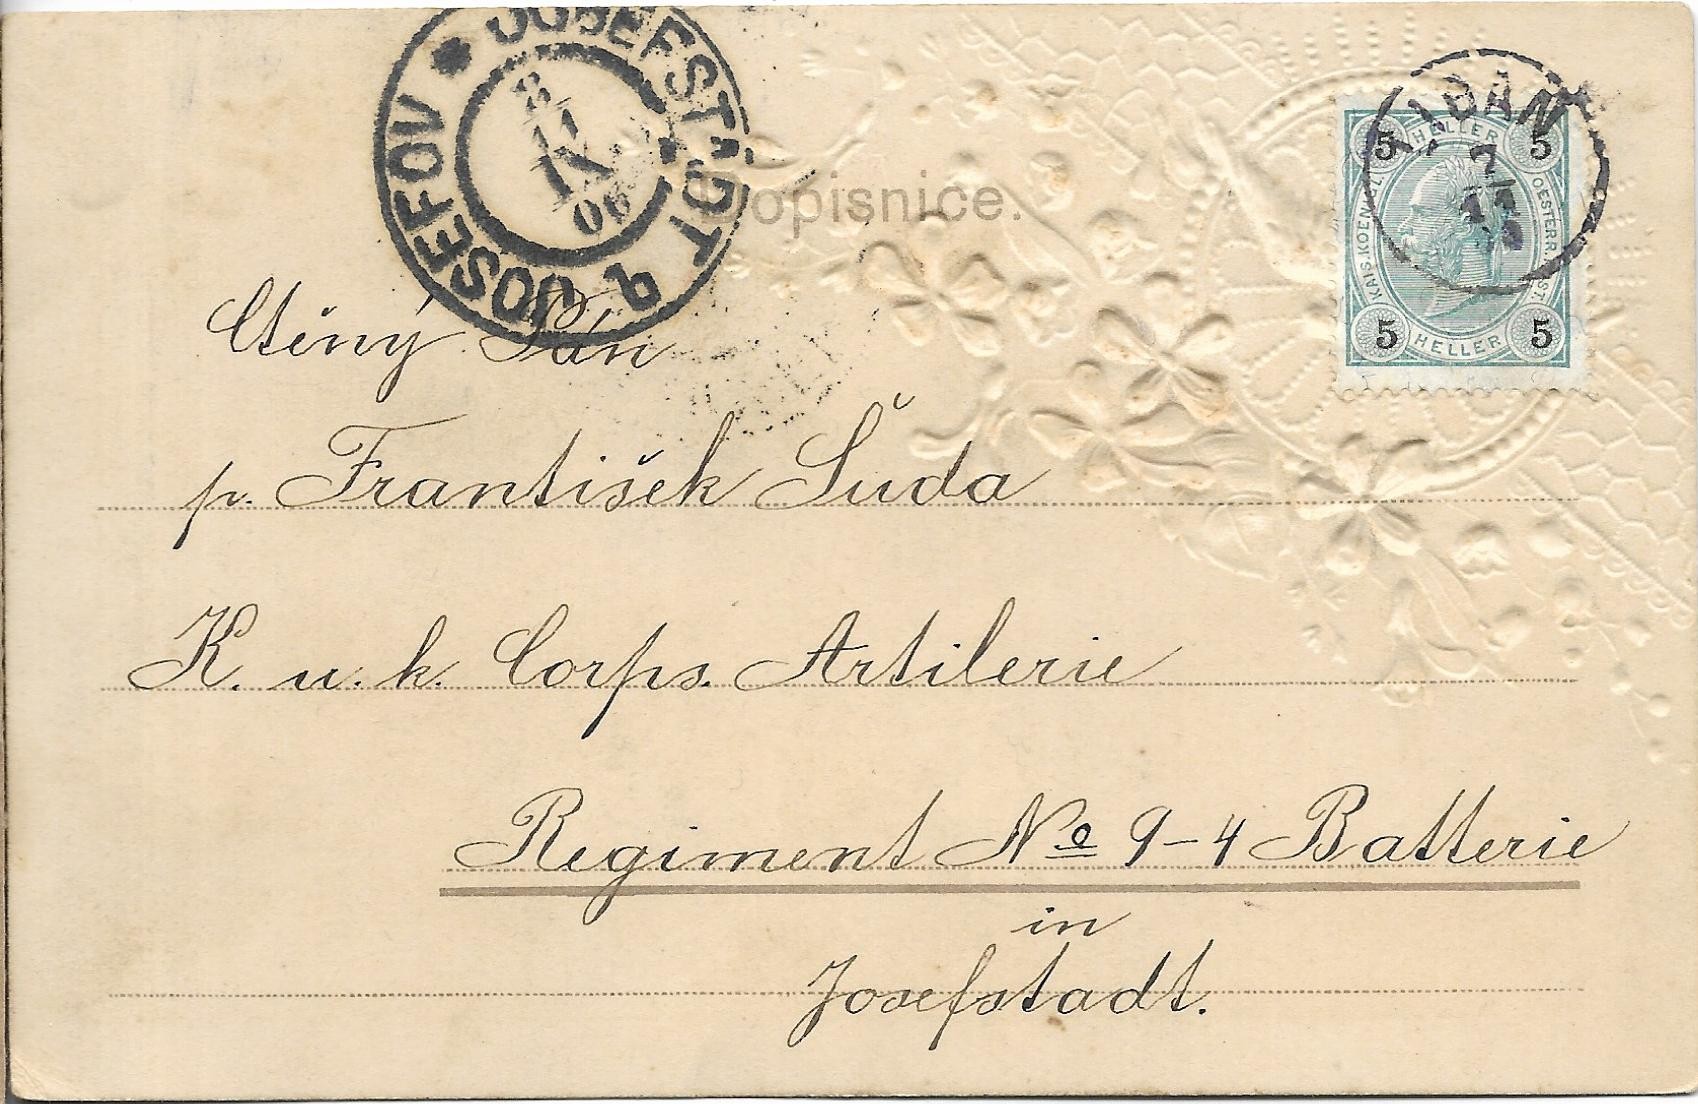 JOSEFSTADT
JOSEFOV
06
Dopisnice.
5 HELLER 5
KAIS. KOEN. OESTERR. POST.
5 HELLER 5
Ctěný Pán
p. František Šuda
K. u. k. Corps. Artilerie
Regiment No 9-4 Batterie
in
Josefstadt.